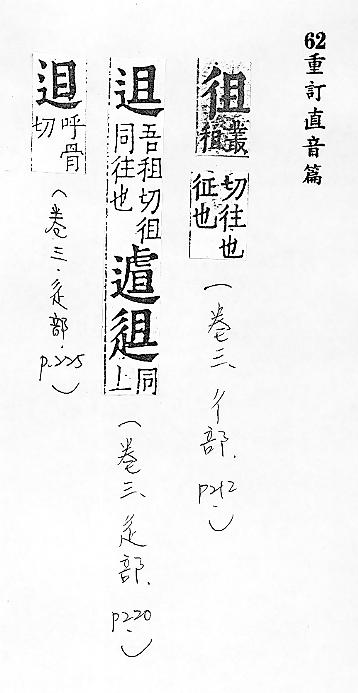 62重訂直音篇
徂
叢
租
切往也
征也
（卷三、彳部.p212.）
吾租切徂
同往也
同
上
（卷三、辵部.p220.）
呼骨
切
（卷三.辵部.p.225.）